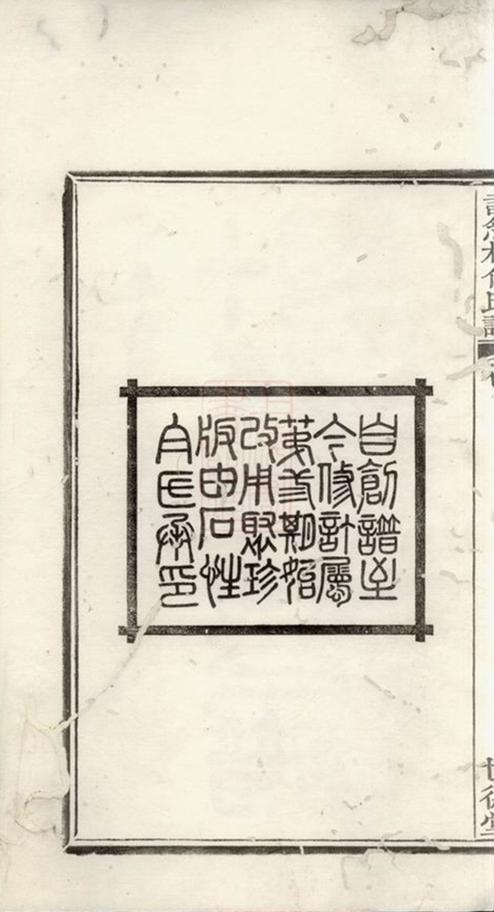 自創譜至
今修計屬
第期始
改用聚珍
版由石
承印
氏譜
世德堂